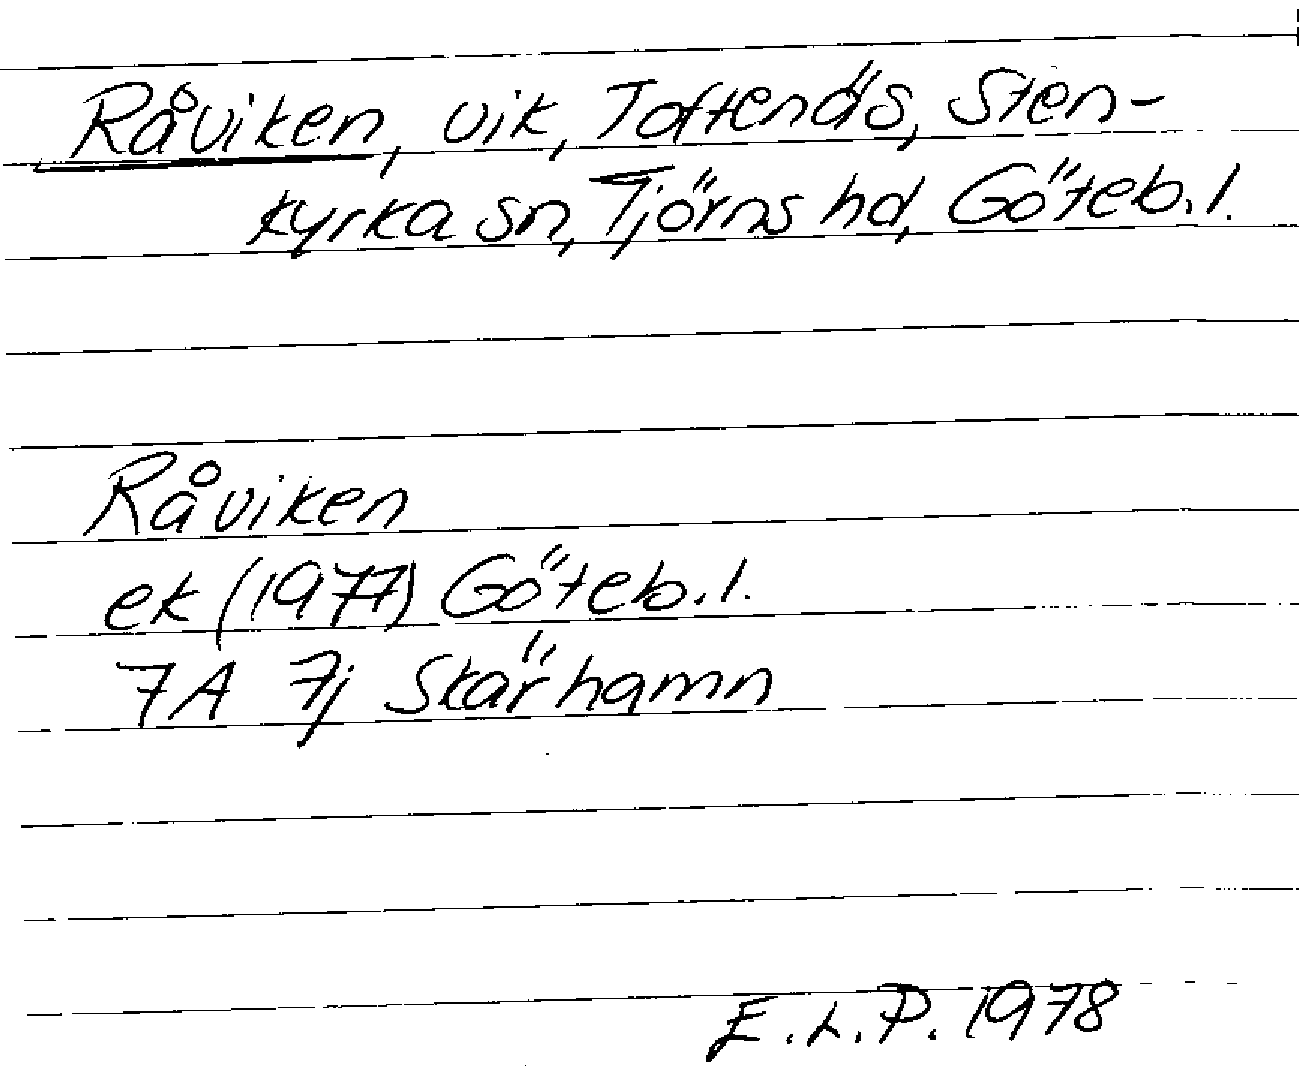 Råviken, vik, Toftenäs, Sten-
kyrka sn, Tjörns hd, Göteb.l.
Råviken
ek (1977) Göteb.l.
7A 7j Skärhamn
E.L.P. 1978